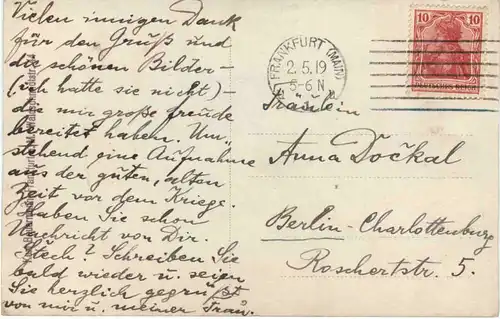 Vielen innigen Dank
für den Gruß und
die schönen Bilder -
(ich hatte sie nicht) -
die mir große Freude
bereitet haben. Um-
stehend eine Aufnahme
aus der guten, alten
Zeit vor dem Kriege.
Haben Sie schon
Nachricht von Dir.
Stech? Schreiben Sie
bald wieder u. seien
Sie herzlich gegrüßt
von mir u. meiner Frau.
FRANKFURT (MAIN)
2.5.19
5-6 N
10 10
DEUTSCHES REICH
Fräulein
Anna Dočkal
Berlin-Charlottenburg
Roscherstr. 5.